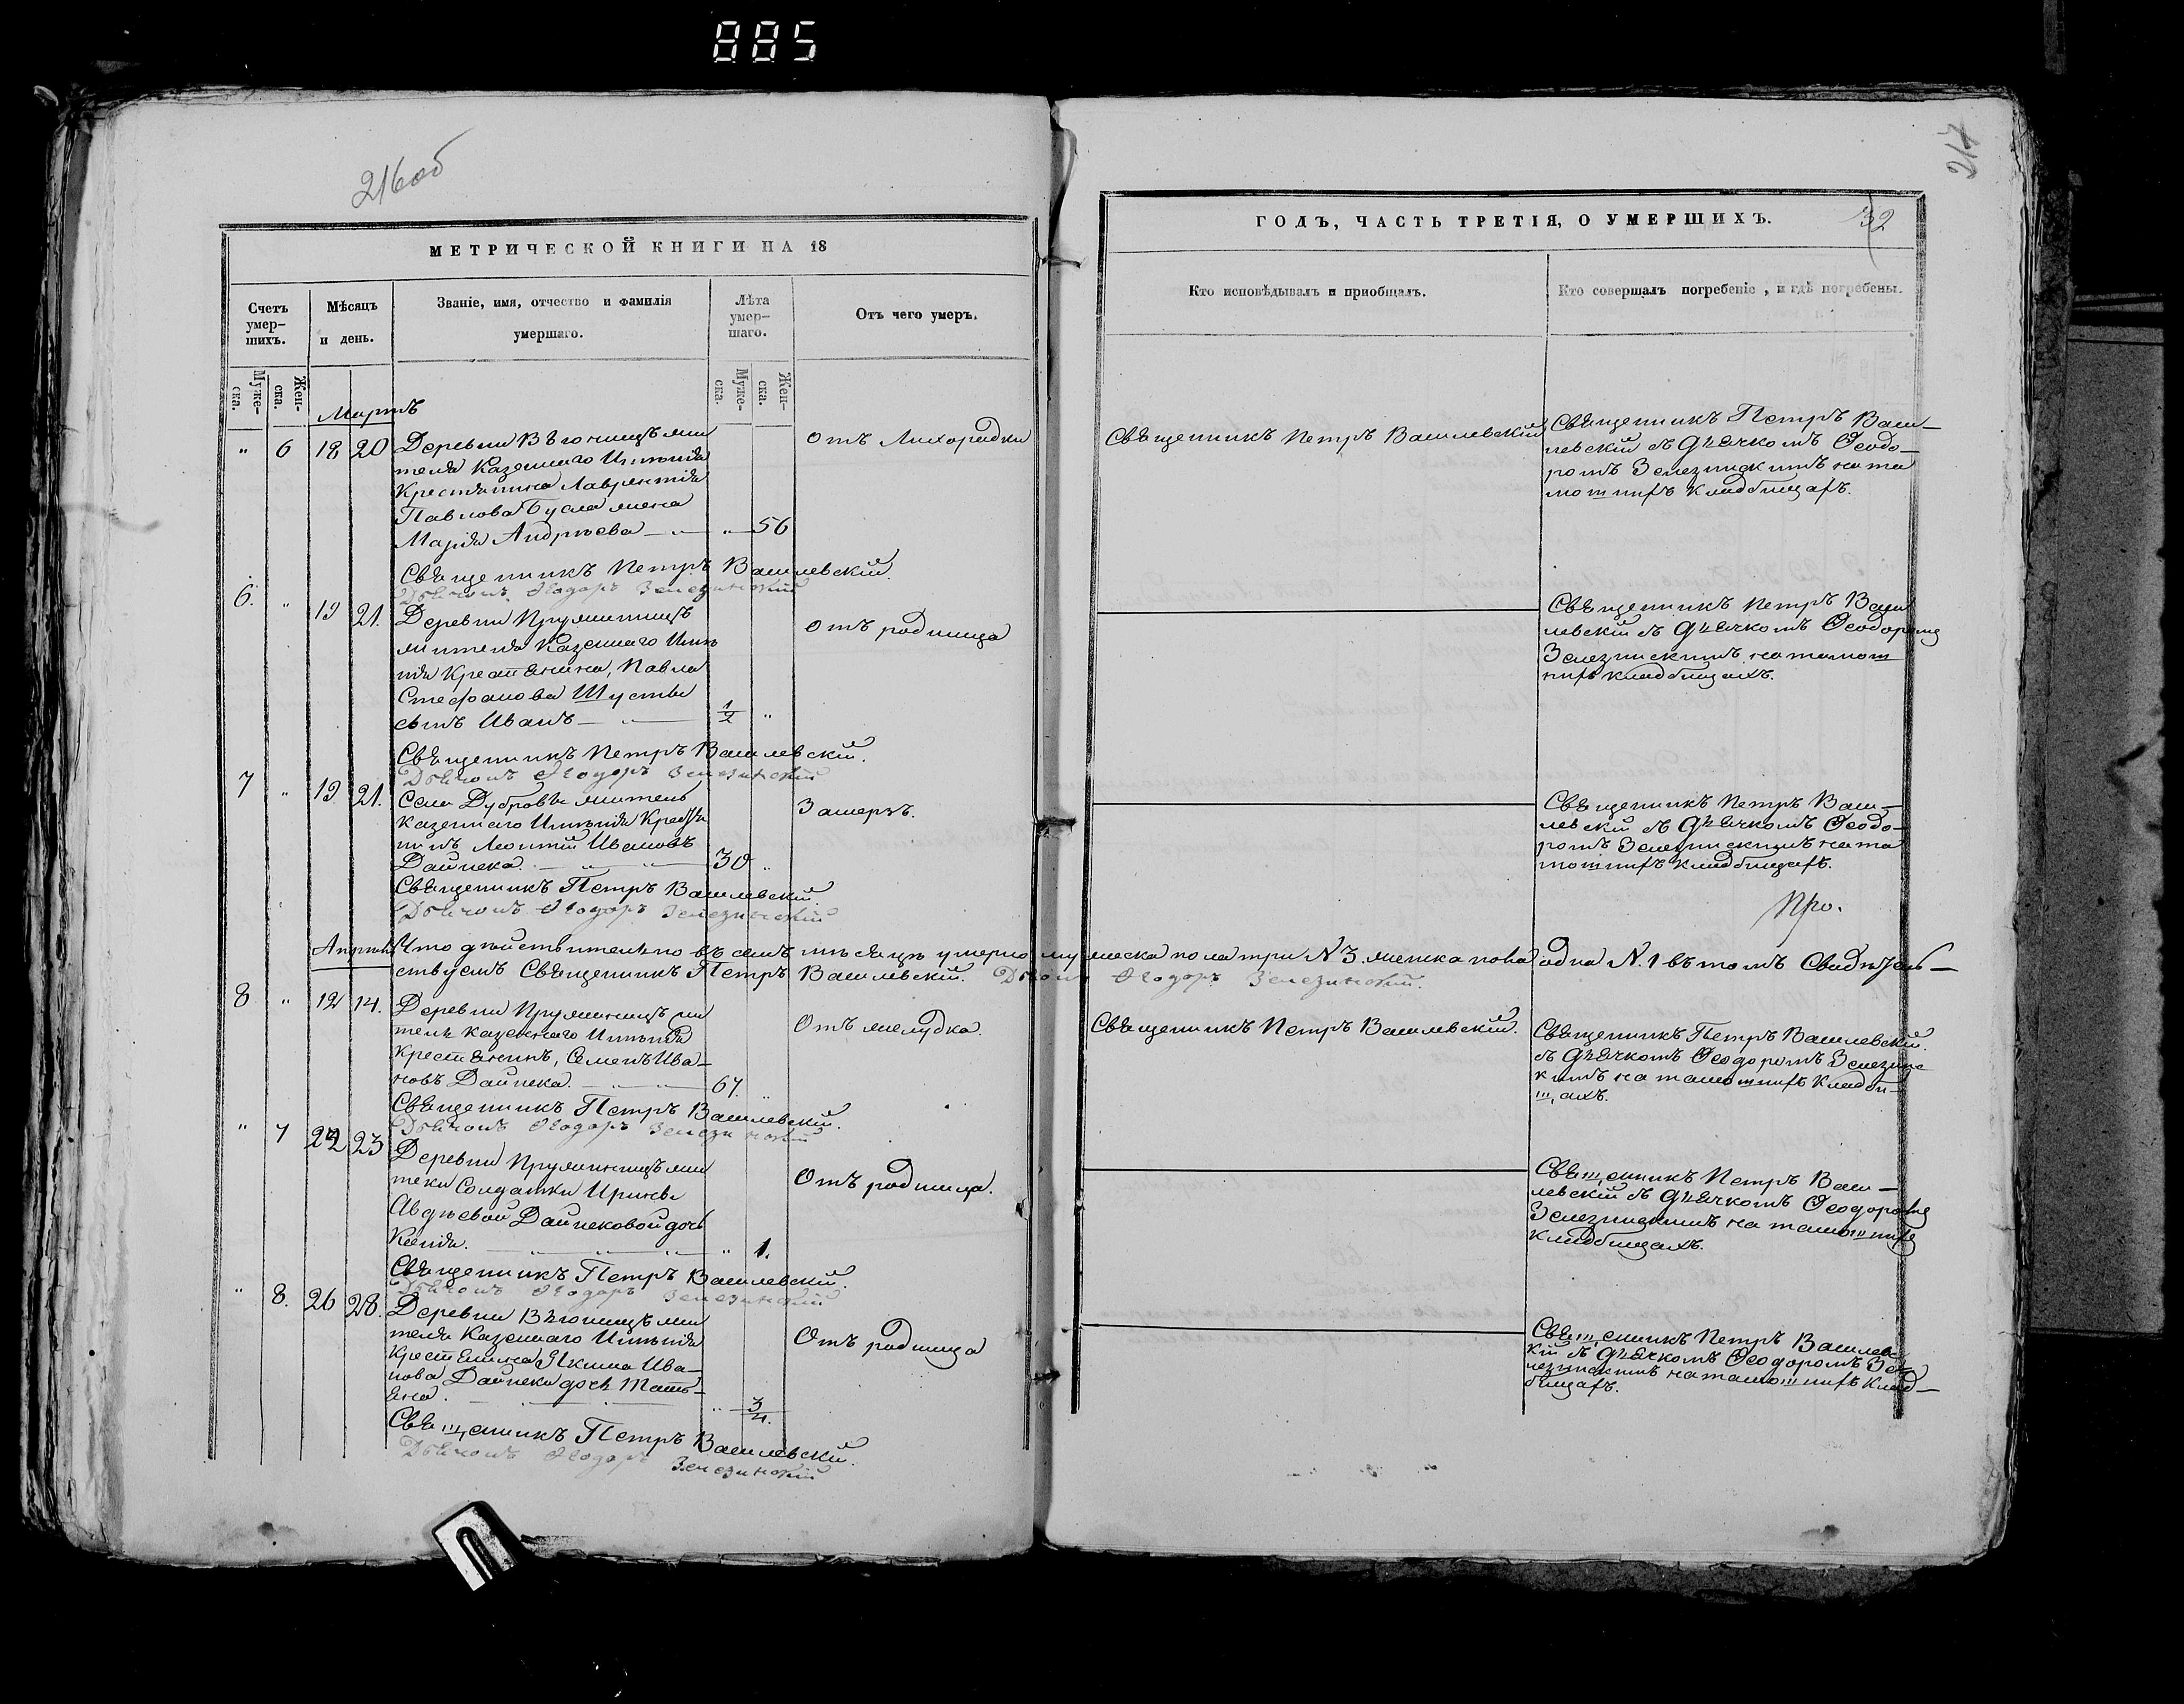 885
216об
217
МЕТРИЧЕСКОЙ КНИГИ НА 18
ГОДЪ, ЧАСТЬ ТРЕТІЯ, О УМЕРШИХЪ.
32
Счетъ умер-
шихъ.
Мѣсяцъ
и день.
Званіе, имя, отчество и фамилія
умершаго.
Лѣта
умер-
шаго.
Отъ чего умеръ.
Кто исповѣдывалъ и пріобщалъ.
Кто совершалъ погребеніе, и гдѣ погребены.
Муже-
ска.
Жен-
ска.
Муже-
ска.
Жен-
ска.
Мартъ
" 6 18 20 Деревни Вѣгонищъ жи
теля Казеннаго Имѣнія
Крестянина Лаврентія
Павлова жена
Марія Андрѣева " 56
Отъ Лихорадки
Священникъ Петръ Василевскій
Священникъ Петръ Васи-
левскій съ Дьячкомъ Ѳеодо-
ромъ Зелезинскимъ на та
мошнихъ кладбищахъ.
Священникъ Петръ Василевскій.
Дьячокъ Ѳеодоръ Зелезинскій
6. " 19 21. Деревни Пружинищъ
жителя Казеннаго Имѣ
нія Крестянина, Павла
Стефанова Шусты
сынъ Иванъ 1/2 "
Отъ родимца
Священникъ Петръ Васи
левскій съ Дьячкомъ Ѳеодоромъ
Зелезинскимъ на тамош
нихъ кладбищахъ.
Священникъ Петръ Василевскій.
Дьячокъ Ѳеодоръ Зелезинскій
7 " 19 21. Села Дубровы житель
казеннаго Имѣнія Крестя
нинъ Леонтій Ивановъ
Дайнека. 30 "
Замерзъ.
Священникъ Петръ Васи-
левскій съ Дьячкомъ Ѳеодо-
ромъ Зелезинскимъ на та
мошнихъ кладбищахъ.
Священникъ Петръ Василевскій.
Дьячокъ Ѳеодоръ Зелезинскій
Про.
Апрѣль
Что дѣйствительно въ семъ мѣсяцѣ умерло мужеска пола три N 3. женска пола одна N. 1 въ томъ Свидѣтель-
ствуемъ Священникъ Петръ Василевскій. Дьячокъ Ѳеодоръ Зелезинскій.
8 " 12 14. Деревни Пружинищъ жи
тель казеннаго Имѣнія
крестянинъ, Семенъ Ива-
новъ Дайнека. 67. "
Отъ желудка.
Священникъ Петръ Василевскій.
Священникъ Петръ Василевскій.
съ Дьячкомъ Ѳеодоромъ Зелезинс
кимъ на тамошнихъ кладби-
щахъ.
Священникъ Петръ Василевскій.
Дьячокъ Ѳеодоръ Зелезинскій
" 7 22 23 Деревни Пружинищъ жи
телки Солдатки Ирины
Авдѣевой Дайнековой дочь
Ксенія. " 1.
Отъ родимца.
Священникъ Петръ Васи-
левскій съ Дьячкомъ Ѳеодоромъ
Зелезинскимъ на тамошнихъ
кладбищахъ.
Священникъ Петръ Василевскій.
Дьячокъ Ѳеодоръ Зелезинскій
" 8. 26 28. Деревни Вѣгонищъ жи
теля Казеннаго Имѣнія
Крестянина Якима Ива-
нова Дайнеки дочь Тать-
яна. " 3/4.
Отъ родимца
Священникъ Петръ Василевс
кій съ Дьячкомъ Ѳеодоромъ Зе-
лезинскимъ на тамошнихъ клад-
бищахъ.
Священникъ Петръ Василевскій.
Дьячокъ Ѳеодоръ Зелезинскій